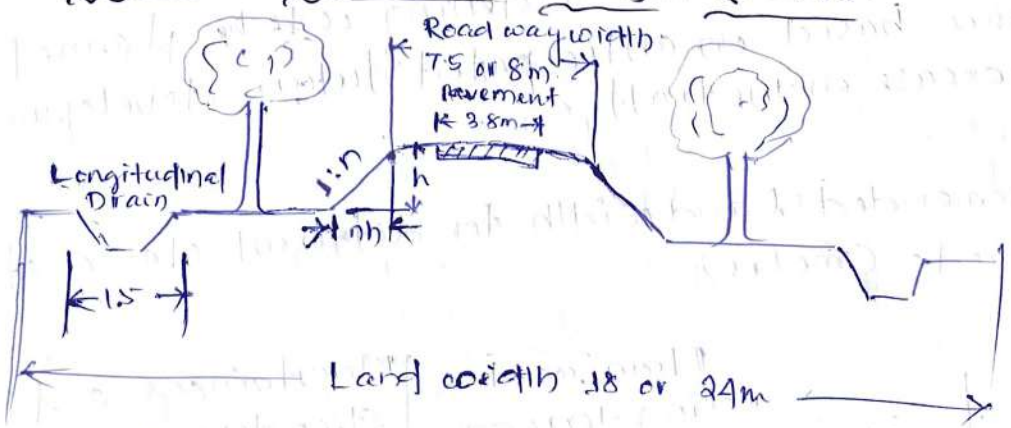 Road way width
7.5 or 8m
Pavement
3.8m
Longitudinal
Drain
1:n
h
nh
1.5
Land width 18 or 24m